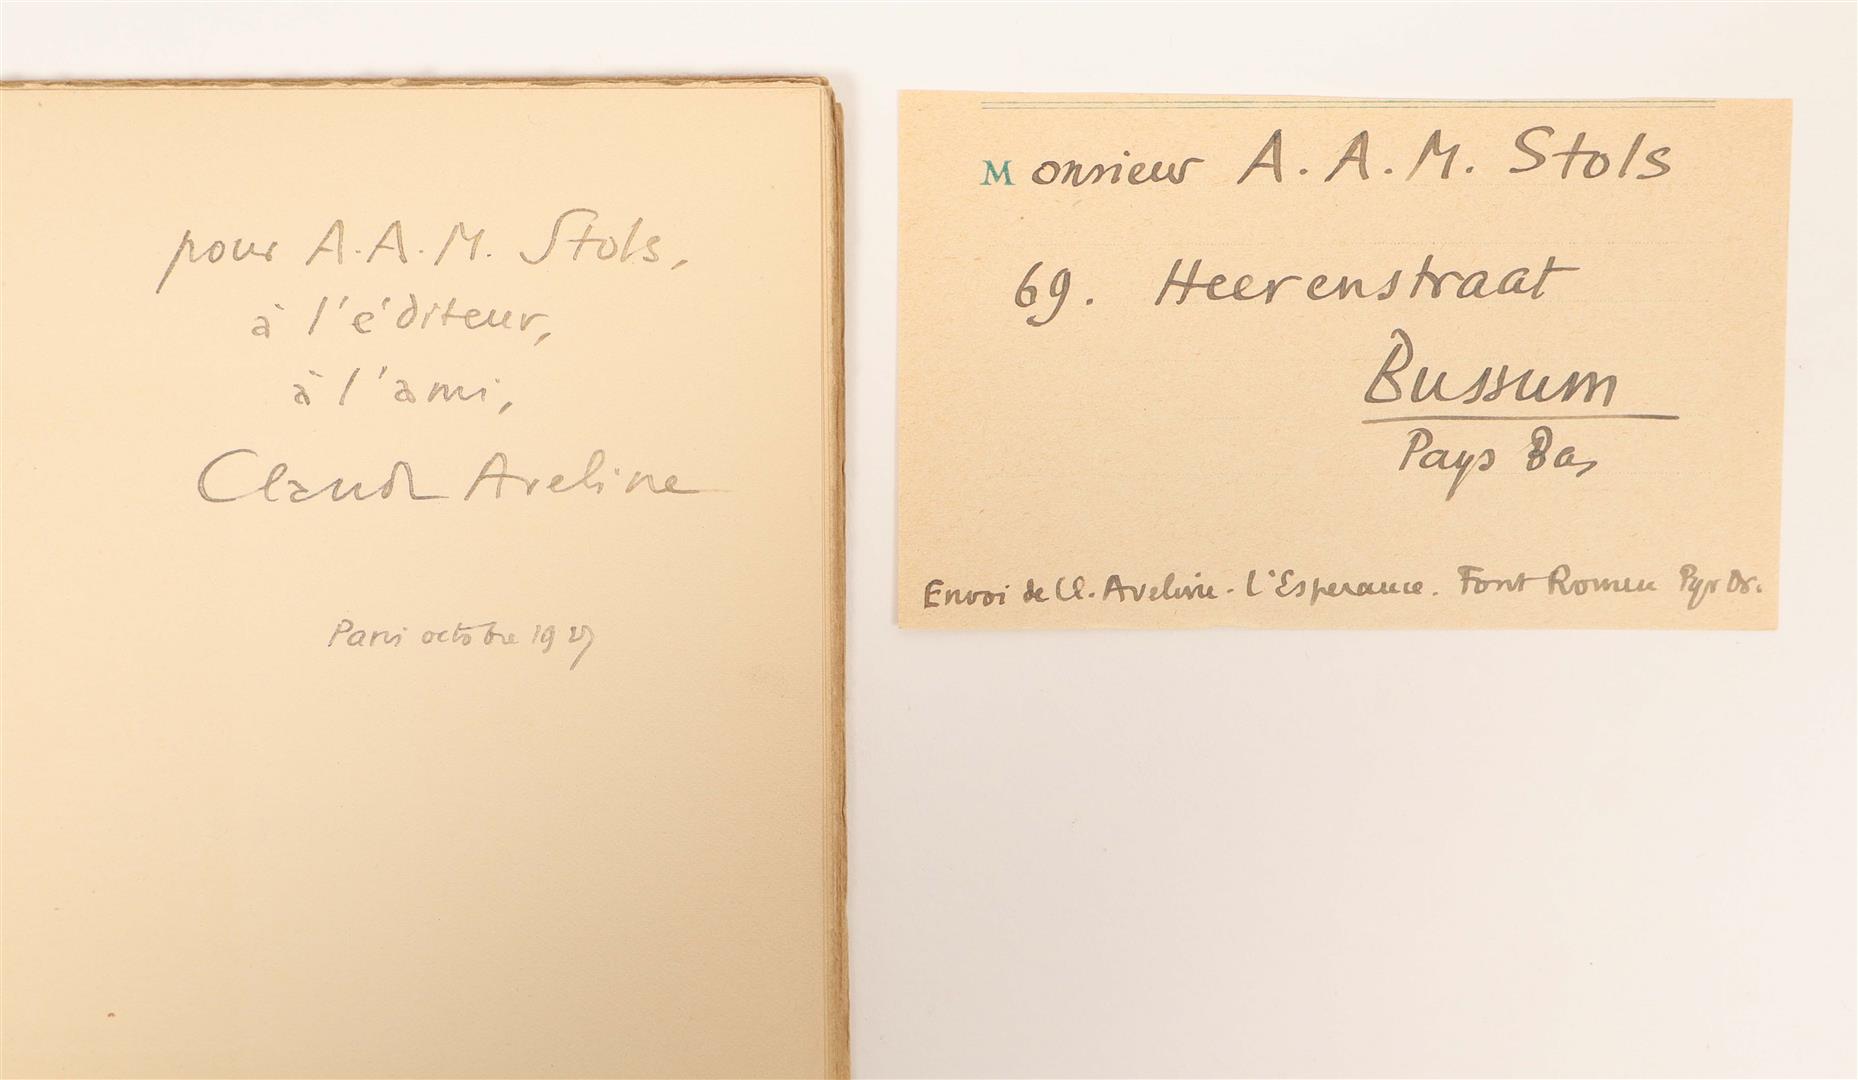 pour A.A.M. Stols,
à l'éditeur,
à l'ami,
Claude Aveline
Paris octobre 1927
Monsieur A.A.M. Stols
69. Heerenstraat
Bussum
Pays Bas
Envoi de Cl. Aveline. L'Esperance. Font Romeu Pyr Or.